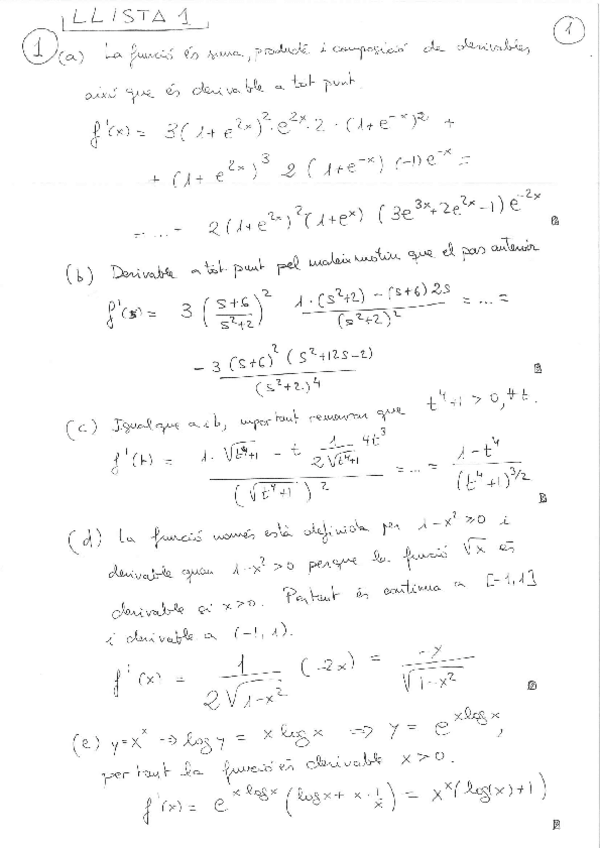 LLISTA 1
1
1 (a) La funció és suma, producte i composició de derivables,
així que és derivable a tot punt.
f'(x) = 3(1+e^{2x})^2·e^{2x}·2·(1+e^{-x})^2 +
+ (1+e^{2x})^3 2(1+e^{-x})(-1)e^{-x} =
= ... = 2(1+e^{2x})^2(1+e^x)(3e^{3x}+2e^{2x}-1)e^{-2x}
(b) Derivable a tot punt pel mateix motiu que el pas anterior
f'(s) = 3 ((s+6)/(s^2+2))^2 (1·(s^2+2) - (s+6)2s)/(s^2+2)^2 = ... =
-3(s+6)^2(s^2+12s-2)/(s^2+2)^4
(c) Igual que a i b, important remarcar que t^4+1 > 0, ∀t.
f'(t) = (1·√(t^4+1) - t 1/(2√(t^4+1)) 4t^3)/(√(t^4+1))^2 = ... = (1-t^4)/(t^4+1)^{3/2}
(d) La funció només està definida per 1-x^2 ≥ 0 i
derivable quan 1-x^2 > 0 perque la funció √x és
derivable si x>0. Per tant és contínua a [-1,1]
i derivable a (-1,1).
f'(x) = 1/(2√(1-x^2)) (-2x) = -x/√(1-x^2)
(e) y=x^x ⇒ log y = x log x ⇒ y = e^{x log x},
per tant la funció és derivable x>0.
f'(x) = e^{x log x}(log x + x·1/x) = x^x(log(x)+1)